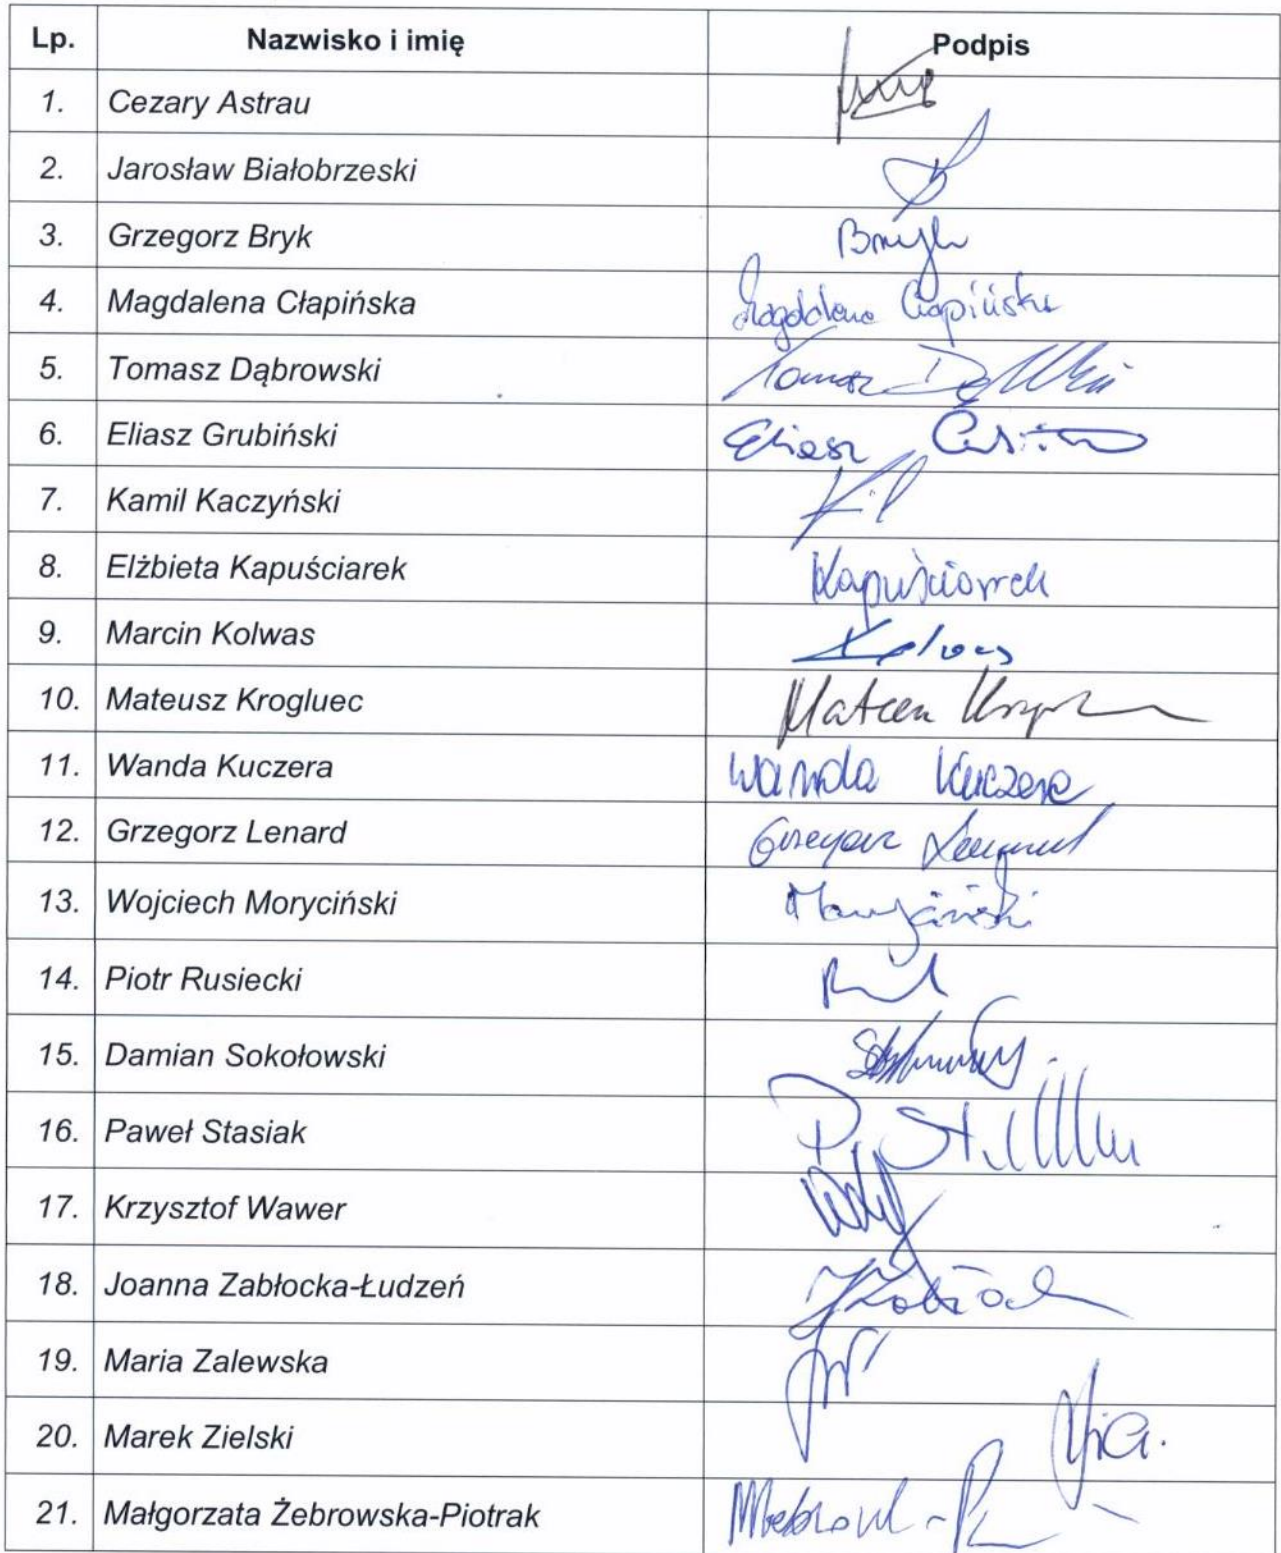 Lp. Nazwisko i imię Podpis
1. Cezary Astrau
2. Jarosław Białobrzeski
3. Grzegorz Bryk Bryk
4. Magdalena Cłapińska Magdalena Cłapińska
5. Tomasz Dąbrowski Tomasz
6. Eliasz Grubiński Eliasz
7. Kamil Kaczyński
8. Elżbieta Kapuściarek Kapuściarek
9. Marcin Kolwas Kolwas
10. Mateusz Krogluec
11. Wanda Kuczera Wanda Kuczera
12. Grzegorz Lenard Grzegorz Lenard
13. Wojciech Moryciński Moryciński
14. Piotr Rusiecki
15. Damian Sokołowski
16. Paweł Stasiak
17. Krzysztof Wawer
18. Joanna Zabłocka-Łudzeń
19. Maria Zalewska
20. Marek Zielski
21. Małgorzata Żebrowska-Piotrak